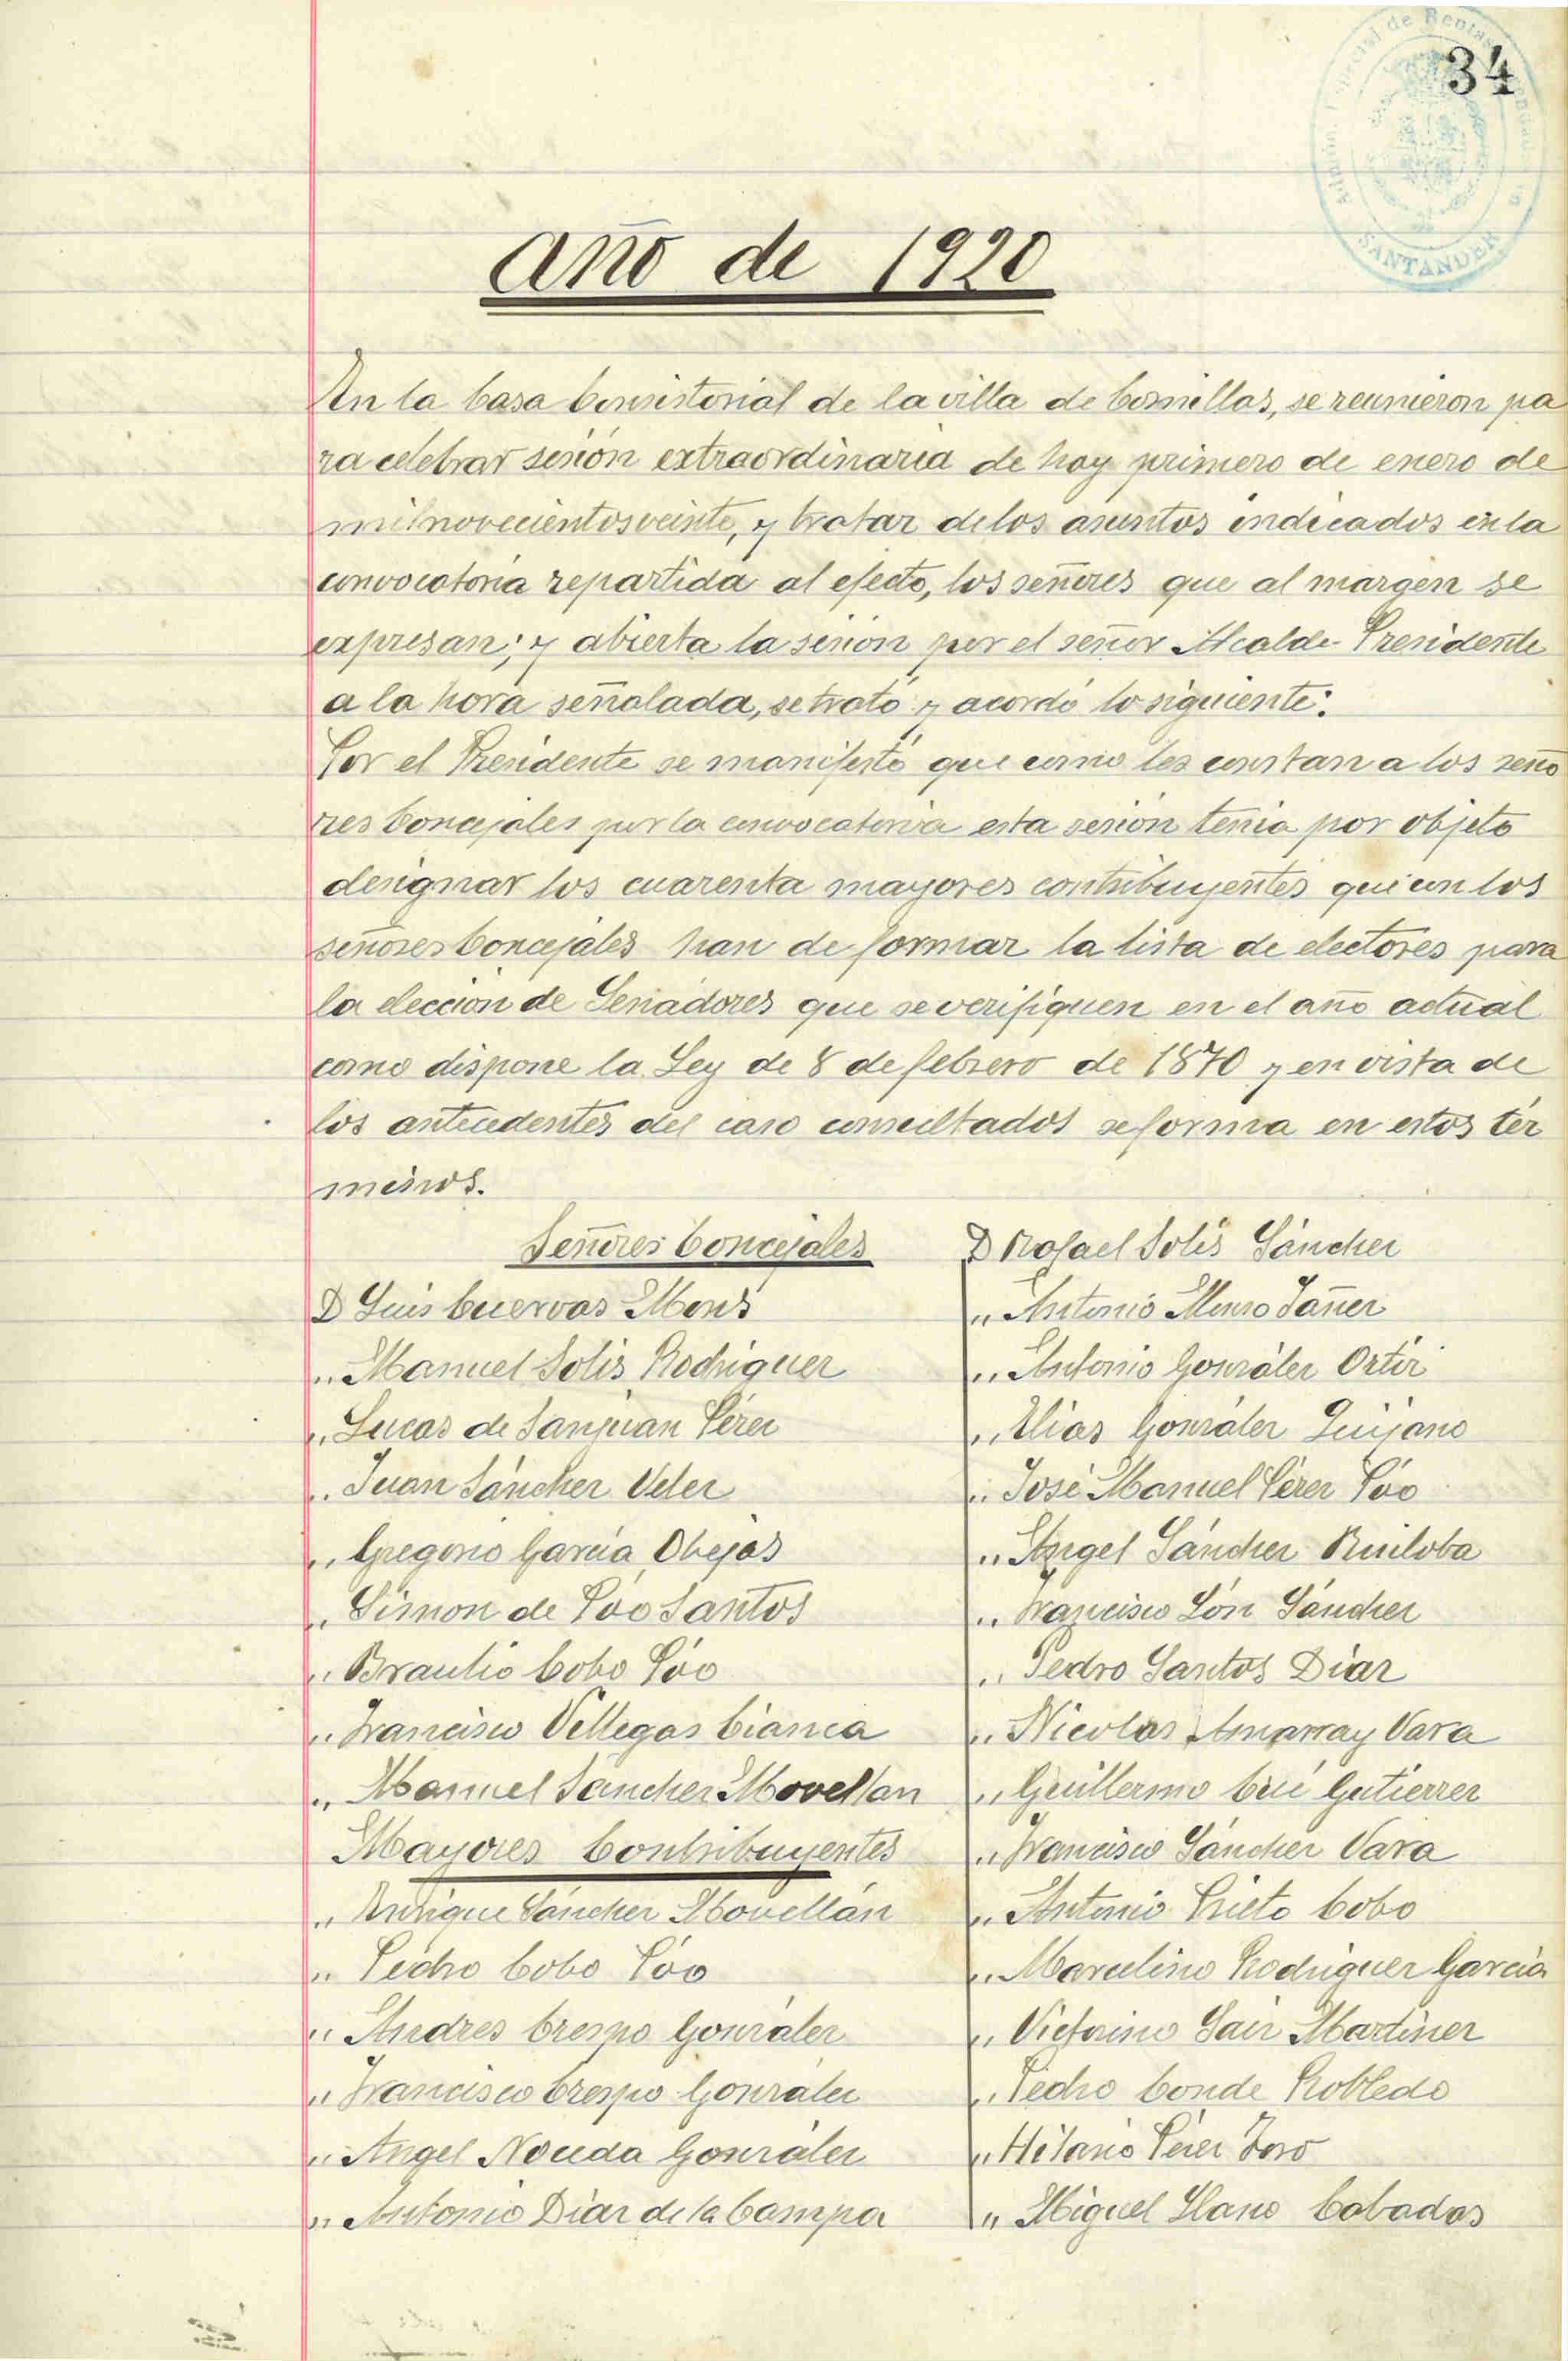 34
Admón. Especial de Rentas
SANTANDER
Año de 1920
En la Casa Consistorial de la villa de Comillas, se reunieron pa
ra celebrar sesión extraordinaria de hoy primero de enero de
mil novecientos veinte, y tratar de los asuntos indicados en la
convocatoria repartida al efecto, los señores que al margen se
expresan; y abierta la sesion por el señor Alcalde-Presidente
a la hora señalada, se trató y acordó lo siguiente:
Por el Presidente se manifestó que como les constan a los seño
res Concejales por la convocatoria esta sesión tenia por objeto
designar los cuarenta mayores contribuyentes que con los
señores Concejales han de formar la lista de electores para
la elección de Senadores que se verifiquen en el año actual
como dispone la Ley de 8 de febrero de 1870 y en vista de
los antecedentes del caso consultados se forma en estos tér
minos.
Señores Concejales
D Luis Cuervas Mons
" Manuel Solis Rodriguez
" Lucas de Sanjuan Pérez
" Juan Sánchez Velez
" Gregorio García Obejas
" Simon de Póo Santos
" Braulio Cobo Póo
" Francisco Villegas Cianca
" Manuel Sánchez Movellan
Mayores Contribuyentes
" Enrique Sánchez Movellán
" Pedro Cobo Póo
" Andres Crespo González
" Francisco Crespo González
" Angel Noceda González
" Antonio Diaz de la Campa
D Rafael Solís Sánchez
" Antonio Muno Sañez
" Antonio González Ortiz
" Elias González Quijano
" José Manuel Pérez Póo
" Angel Sánchez Ruiloba
" Francisco Són Sánchez
" Pedro Santos Diaz
" Nicolas Amarray Vara
" Guillermo Cué Gutierrez
" Francisco Sánchez Vara
" Antonio Prieto Cobo
" Marcelino Rodriguez García
" Victorino Saiz Martinez
" Pedro Conde Robledo
" Hilario Pérez Toro
" Miguel Llano Cobadas